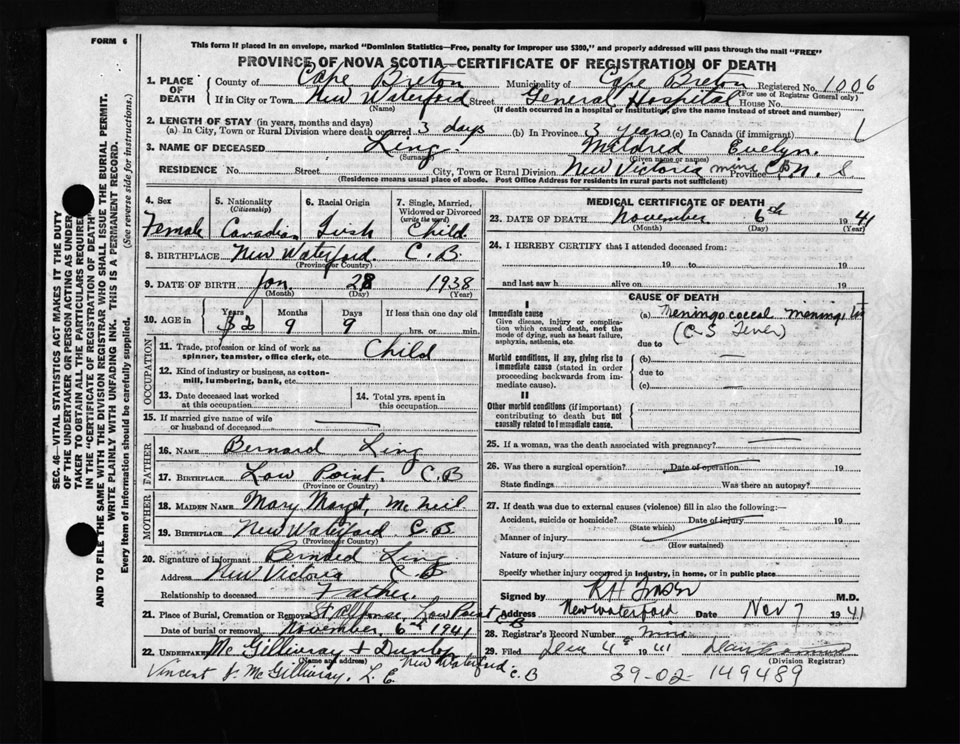 FORM 6
This form if placed in an envelope, marked "Dominion Statistics—Free, penalty for improper use $300," and properly addressed will pass through the mail "FREE"
PROVINCE OF NOVA SCOTIA—CERTIFICATE OF REGISTRATION OF DEATH
1. PLACE OF DEATH County of Cape Breton Municipality of Cape Breton Registered No. 1006
(For use of Registrar General only)
If in City or Town New Waterford Street General Hospital House No.
(Name) (If death occurred in a hospital or institution, give the name instead of street and number)
2. LENGTH OF STAY (in years, months and days)
(a) In City, Town or Rural Division where death occurred 3 days (b) In Province 3 years (c) In Canada (if immigrant)
3. NAME OF DECEASED Ling Mildred Evelyn.
(Surname) (Given name or names)
RESIDENCE No. Street City, Town or Rural Division New Victoria mines C B Province N. S
(Residence means usual place of abode. Post Office Address for residents in rural parts not sufficient)
4. Sex Female
5. Nationality (Citizenship) Canadian
6. Racial Origin Irish
7. Single, Married, Widowed or Divorced (write the word) Child
8. BIRTHPLACE New Waterford C. B.
(Province or Country)
9. DATE OF BIRTH Jan. 28 1938
(Month) (Day) (Year)
10. AGE in Years Months Days If less than one day old
3 2 9 9 hrs. or min.
OCCUPATION
11. Trade, profession or kind of work as spinner, teamster, office clerk, etc. Child
12. Kind of industry or business, as cotton-mill, lumbering, bank, etc.
13. Date deceased last worked at this occupation
14. Total yrs. spent in this occupation
15. If married give name of wife or husband of deceased
FATHER
16. NAME Bernard Ling
17. BIRTHPLACE Low Point. C. B
(Province or Country)
MOTHER
18. MAIDEN NAME Mary Margt. McNeil
19. BIRTHPLACE New Waterford C. B
(Province or Country)
20. Signature of informant Bernard Ling
Address New Victoria C B
Relationship to deceased Father.
21. Place of Burial, Cremation or Removal St Alfonse, Low Point C B
Date of burial or removal November 6th 1941
22. UNDERTAKER McGillivray & Dunlop New Waterford. C. B
(Name and address)
Vincent J. McGillivray, L. E.
MEDICAL CERTIFICATE OF DEATH
23. DATE OF DEATH November 6th 1941
(Month) (Day) (Year)
24. I HEREBY CERTIFY that I attended deceased from:
19 to 19
and last saw h alive on 19
CAUSE OF DEATH
I
Immediate cause
Give disease, injury or complication which caused death, not the mode of dying, such as heart failure, asphyxia, asthenia, etc.
(a) Meningococcal meningitis
(C-S Fever)
due to
Morbid conditions, if any, giving rise to immediate cause (stated in order proceeding backwards from immediate cause).
(b)
due to
(c)
II
Other morbid conditions (if important) contributing to death but not causally related to immediate cause.
25. If a woman, was the death associated with pregnancy?
26. Was there a surgical operation? Date of operation 19
State findings Was there an autopsy?
27. If death was due to external causes (violence) fill in also the following:—
Accident, suicide or homicide? Date of injury 19
(State which)
Manner of injury
(How sustained)
Nature of injury
Specify whether injury occurred in industry, in home, or in public place
Signed by R H Fraser M.D.
Address New Waterford Date Nov 7 1941
28. Registrar's Record Number
29. Filed Dec 4th 1941
(Division Registrar)
39-02-149489
SEC. 46—VITAL STATISTICS ACT MAKES IT THE DUTY
OF THE UNDERTAKER OR PERSON ACTING AS UNDERTAKER TO OBTAIN ALL THE PARTICULARS REQUIRED
IN THE "CERTIFICATE OF REGISTRATION OF DEATH"
AND TO FILE THE SAME WITH THE DIVISION REGISTRAR WHO SHALL ISSUE THE BURIAL PERMIT.
WRITE PLAINLY WITH UNFADING INK. THIS IS A PERMANENT RECORD.
Every item of information should be carefully supplied. (See reverse side for instructions.)